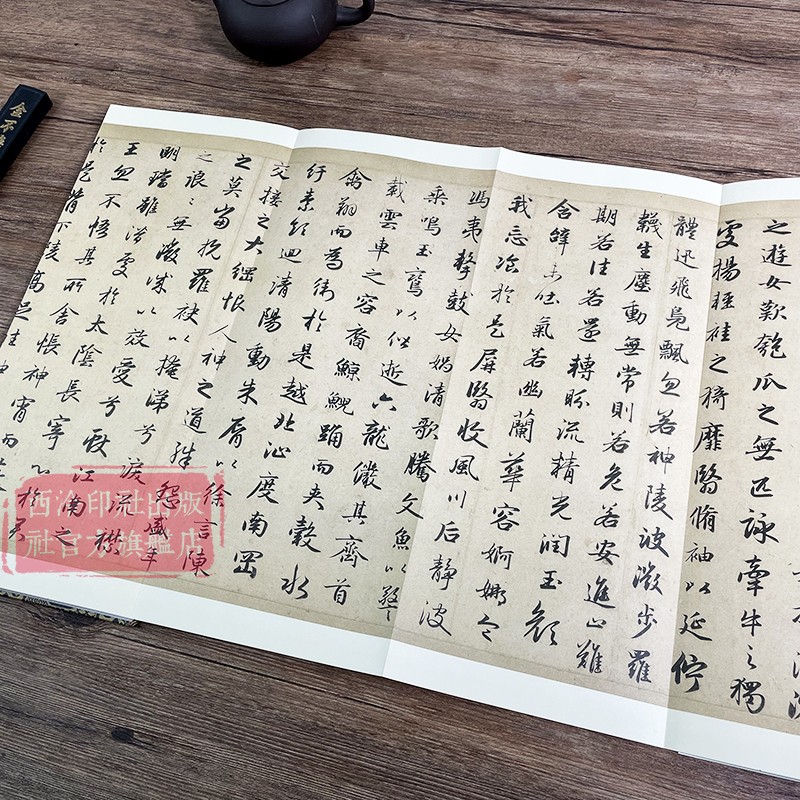 之遊女歎匏瓜之無匹詠牽牛之獨
處揚輕袿之猗靡翳脩袖以延佇
體迅飛鳧飄忽若神陵波微步羅
韈生塵動無常則若危若安進止難
期若往若還轉眄流精光潤玉顏
含辭未吐氣若幽蘭華容婀娜令
我忘飡於是屏翳收風川后靜波
馮夷擊鼓女媧清歌騰文魚以警
乘鳴玉鸞以偕逝六龍儼其齊首
載雲車之容裔鯨鯢踊而夾轂水
禽翔而為衛於是越北沚度南岡
紆素領迴清陽動朱脣以徐言陳
交接之大綱恨人神之道殊怨盛年
之莫當抗羅袂以掩涕兮淚流襟
之浪〻無微誠以效愛兮獻江南之
明璫雖潛處於太陰長寄心於君
王忽不悟其所舍悵神宵而
於是背下陵高足往神
金不
西泠印社出版
社官方旗艦店